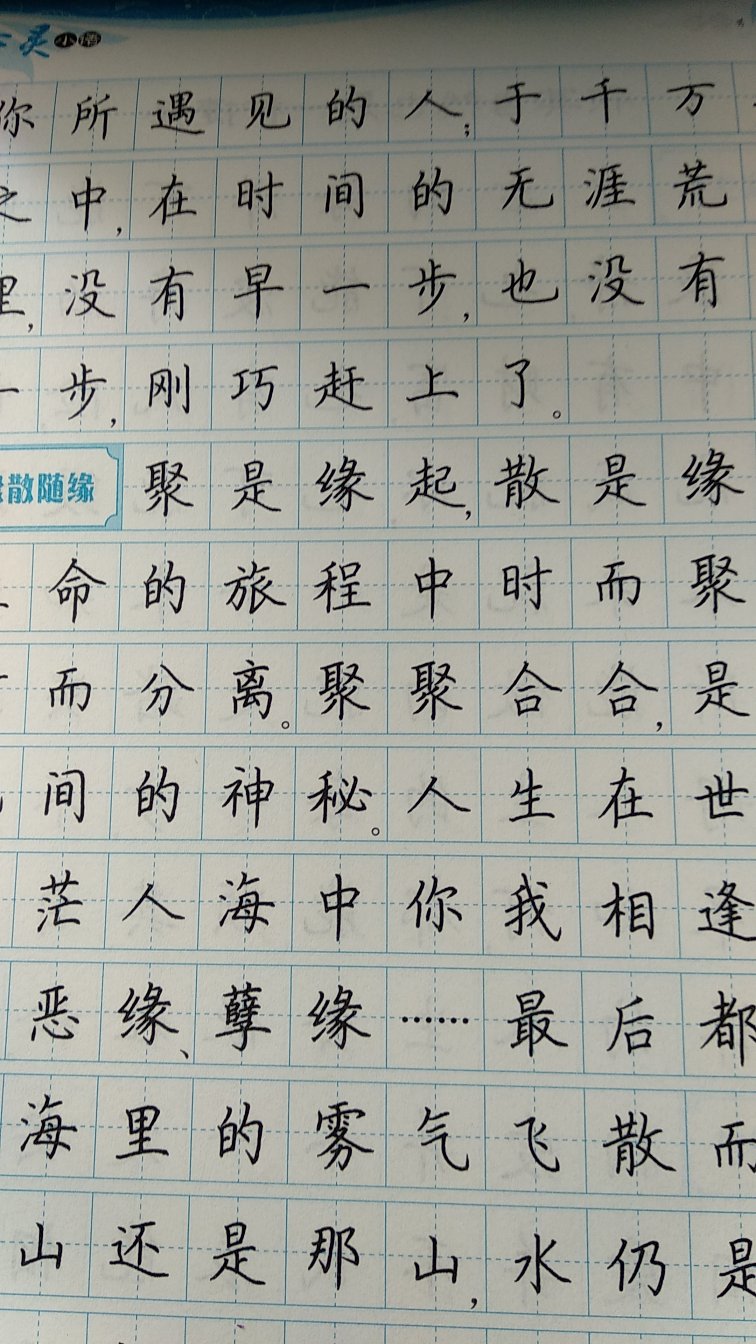 灵小语
你所遇见的人；于千万
之中，在时间的无涯荒
里，没有早一步，也没有
一步，刚巧赶上了。
散随缘 聚是缘起，散是缘
命的旅程中时而聚
而分离。聚聚合合，是
间的神秘。人生在世
茫人海中你我相逢
恶缘、孽缘……最后都
海里的雾气飞散而
山还是那山，水仍是